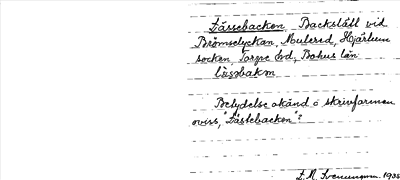 Dässebacken, Backställ vid
Brömselyckan, Mulered, Hjärtum
socken, Torpe hd, Bohus län
lisebakm
Betydelse okänd o skrivformen
oviss, "Dästebacken"?
D. M. Svenungsson. 1935